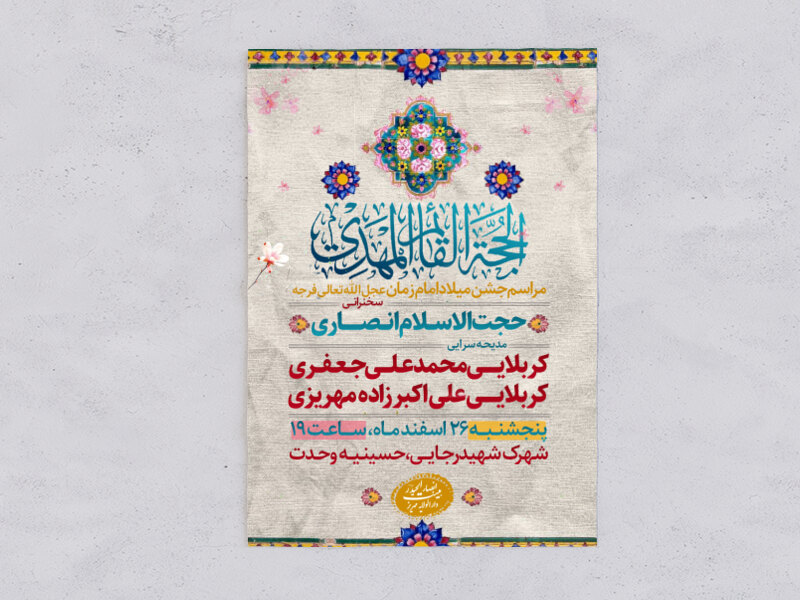 الحجة القائم المهدي
مراسم جشن میلاد امام زمان عجل الله تعالی فرجه
سخنرانی
حجت الاسلام انصاری
مدیحه سرایی
کربلایی محمد علی جعفری
کربلایی علی اکبرزاده مهریزی
پنجشنبه ۲۶ اسفند ماه، ساعت ۱۹
شهرک شهید رجایی، حسینیه وحدت